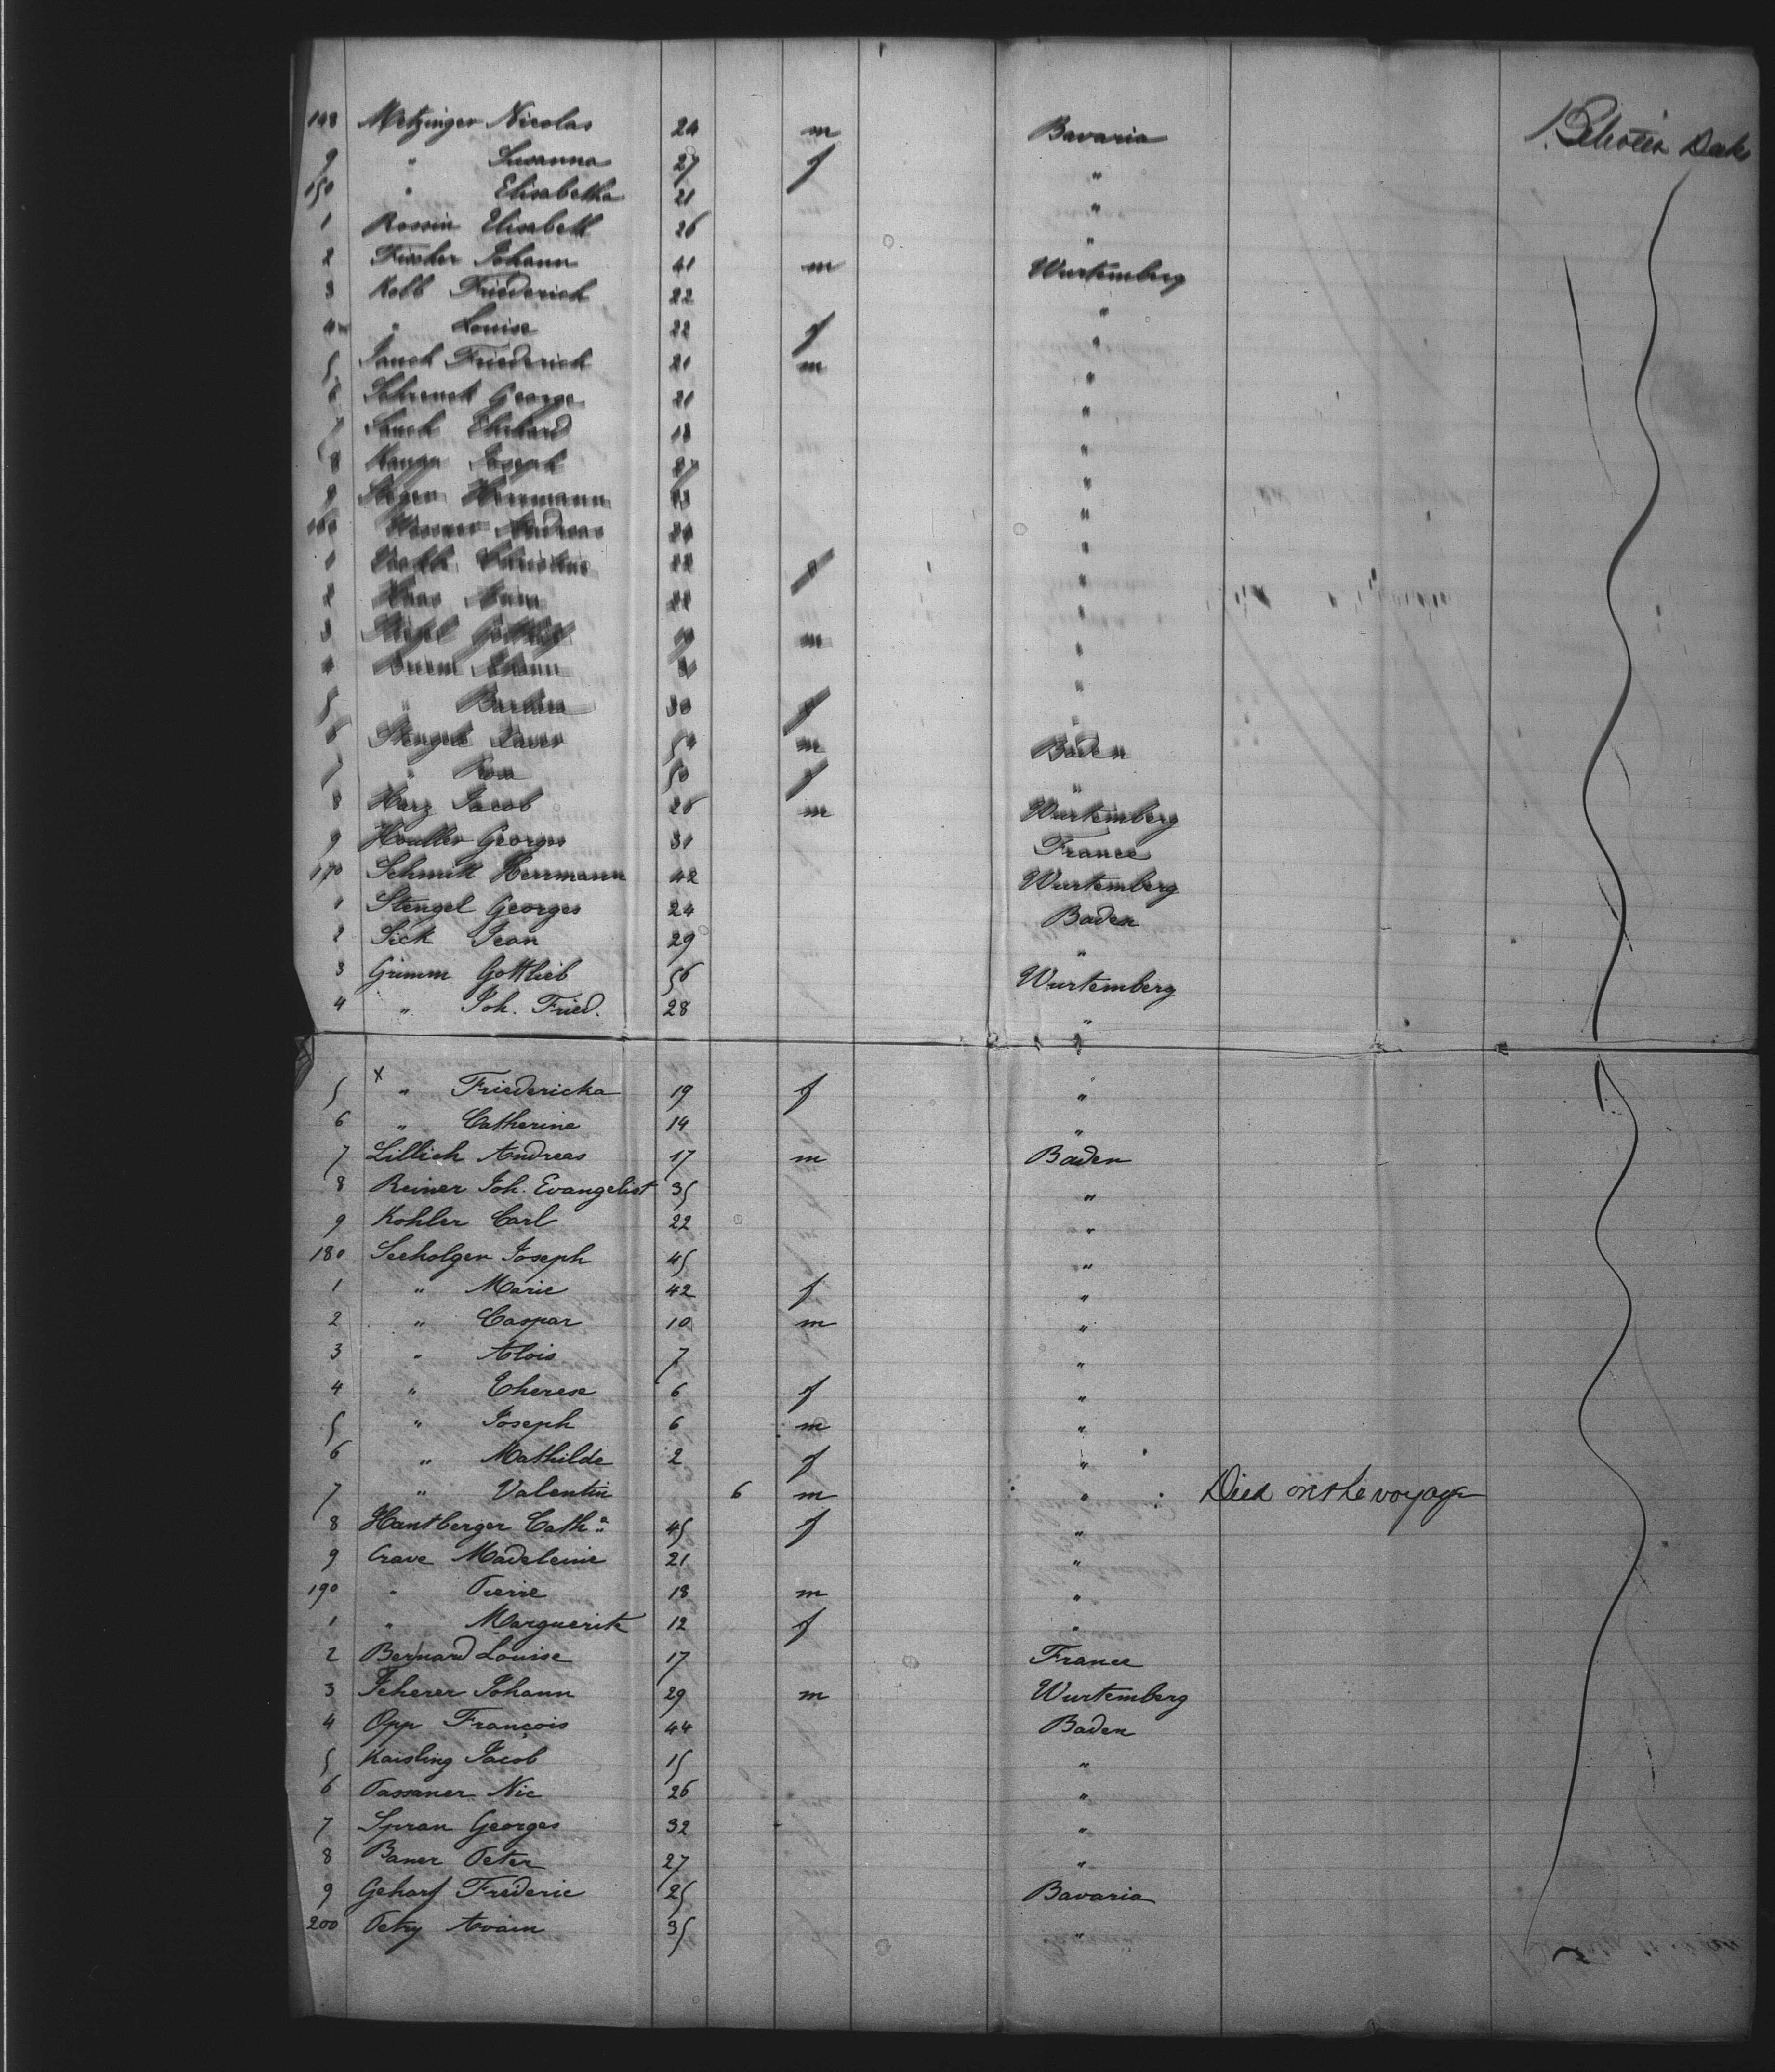 148 Metzinger Nicolas 24 m Bavaria Between Decks
9 " Susanna 27 f "
150 " Elisabetha 21 "
1 Rossin Elisabeth 26 "
2 Fischer Johann 41 m Wurtemberg
3 Kolb Friederich 22 "
4 " Louise 22 f "
5 Jauch Friederich 21 m "
6 Schrenck George 21 "
7 Jauch Ehrhard 18 "
8 Kaupp Joseph 27 "
9 Herrmann "
160 Andreas 24 "
1 Christine 22 f "
2 Haas 22 "
3 m "
4 Johann "
5 " Barbara 30 f "
6 Stengel Xaver m Baden
7 " Rosa 50 f "
8 Herz Jacob 26 m Wurtemberg
9 Georges 31 France
170 Schmitt Herrmann 42 Wurtemberg
1 Stengel Georges 24 Baden
2 Sick Jean 29 "
3 Grimm Gottlieb 56 Wurtemberg
4 " Joh. Fried. 28 "
5 x " Friedericka 19 f "
6 " Catherine 14 "
7 Lillich Andreas 17 m Baden
8 Reiner Joh. Evangelist 35 "
9 Kohler Carl 22 "
180 Seeholger Joseph 45 "
1 " Marie 42 f "
2 " Caspar 10 m "
3 " Alois 7 "
4 " Therese 6 f "
5 " Joseph 6 m "
6 " Mathilde 2 f "
7 " Valentin 6 m " Died on the voyage
8 Hantberger Cath.a 45 f "
9 Crave Madeleine 21 "
190 " Pierre 18 m "
1 " Marguerite 12 f "
2 Bernard Louise 17 France
3 Scherer Johann 29 m Wurtemberg
4 Opp François 44 Baden
5 Kaisling Jacob 15 "
6 Passaner Nic 26 "
7 Spran Georges 32 "
8 Baner Peter 27 "
9 Geharf Frederic 25 Bavaria
200 Petry 35 "